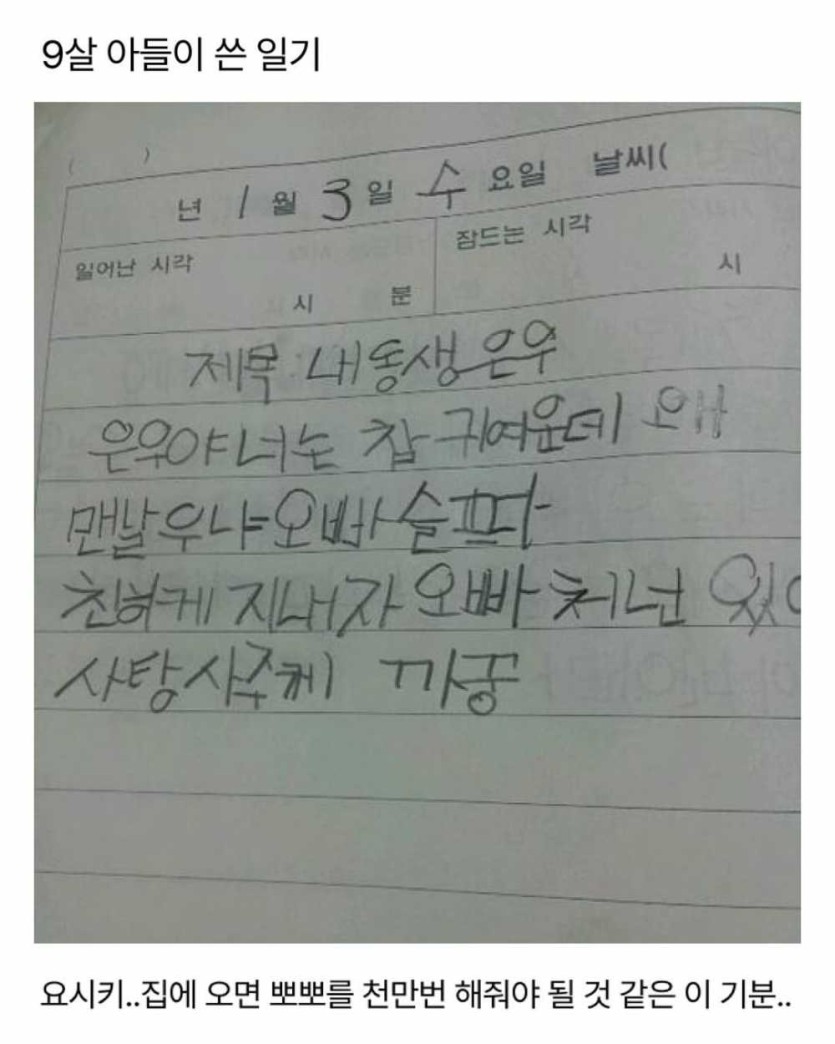 9살 아들이 쓴 일기
( )
년 1월 3일 수요일 날씨(
일어난 시각 잠드는 시각
시 분 시
제목 내동생은우
은우야너는 참 귀여운데 왜
맨날우냐오빠슬프다
친하게지내자오빠처넌 있어
사탕사주께 까꿍
요시키..집에 오면 뽀뽀를 천만번 해줘야 될 것 같은 이 기분..